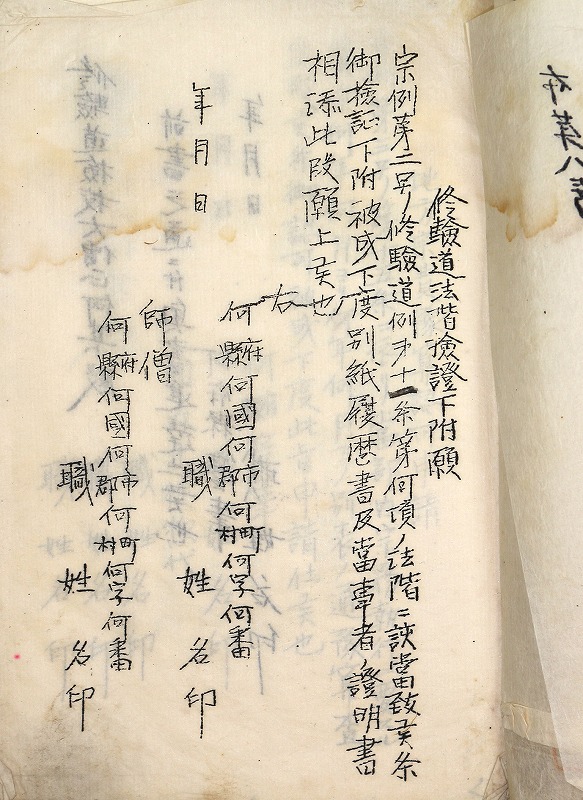 修驗道法階檢證下附願
宗例第二号ノ修驗道例第十一条第何項ノ法階ニ該當致候条
御檢証下附被成下度別紙履歴書及當事者ノ證明書
相添此段願上候也
年月日
右
何府縣何國何市郡何町村何字何番
職 姓名印
師僧
何府縣何國何市郡何町村何字何番
職 姓名印